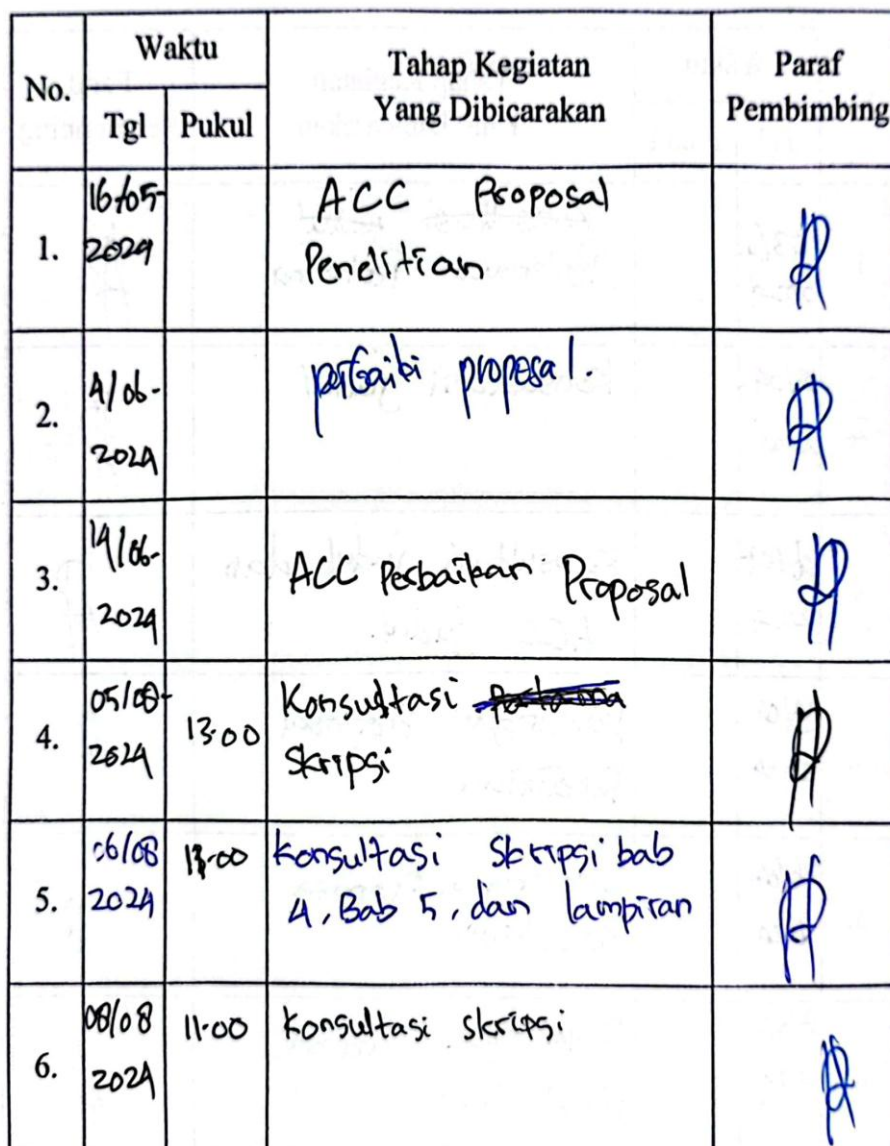 No. Waktu Tahap Kegiatan Yang Dibicarakan Paraf Pembimbing
Tgl Pukul
1. 16/05-2024 ACC Proposal
Penelitian
2. 4/06-2024 perbaiki proposal.
3. 14/06-2024 ACC Perbaikan Proposal
4. 05/08-2024 13.00 Konsultasi
Skripsi
5. 06/08 2024 Konsultasi skripsi bab
4, Bab 5, dan lampiran
6. 08/08 2024 11.00 Konsultasi skripsi